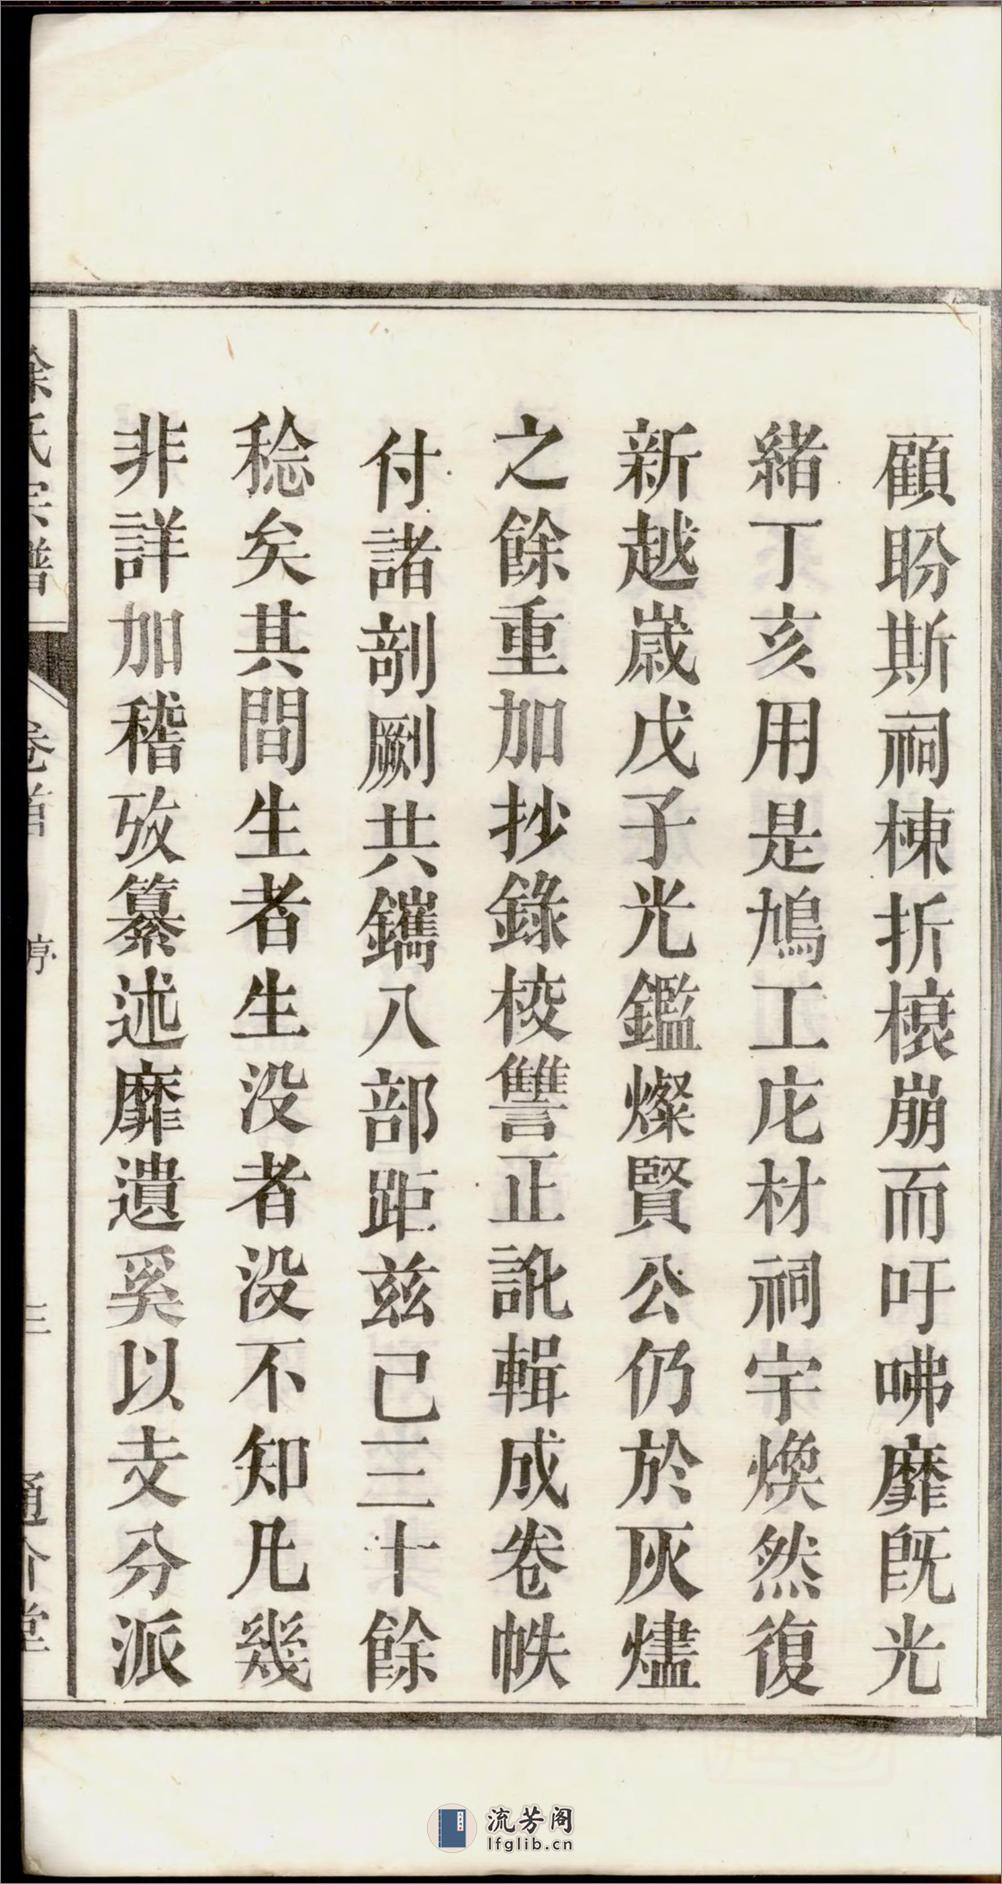 顧盼斯祠棟折榱崩而吁咈靡既光
緒丁亥用是鳩工庀材祠宇煥然復
新越歲戊子光鑑燦賢公仍於灰燼
之餘重加抄錄校讐正訛輯成卷帙
付諸剞劂共鐫八部距茲已三十餘
稔矣其間生者生没者没不知凡幾
非詳加稽攷纂述靡遺奚以支分派
徐氏宗譜
卷首
序
三
通介堂
流芳阁
lfglib.cn